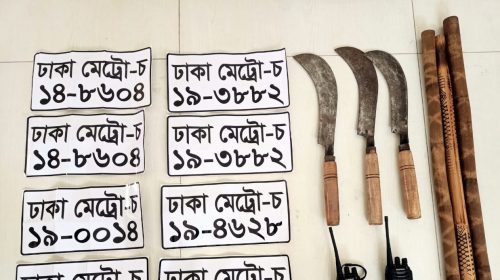 ঢাকা মেট্রো-চ
১৪-৮৬০৪
ঢাকা মেট্রো-চ
১৯-৩৮৮২
ঢাকা মেট্রো-চ
১৪-৮৬০৪
ঢাকা মেট্রো-চ
১৯-৩৮৮২
ঢাকা মেট্রো-চ
১৯-০০১৪
ঢাকা মেট্রো-চ
১৯-৪৬২৮
ঢাকা মেট্রো-চ
ঢাকা মেট্রো-চ